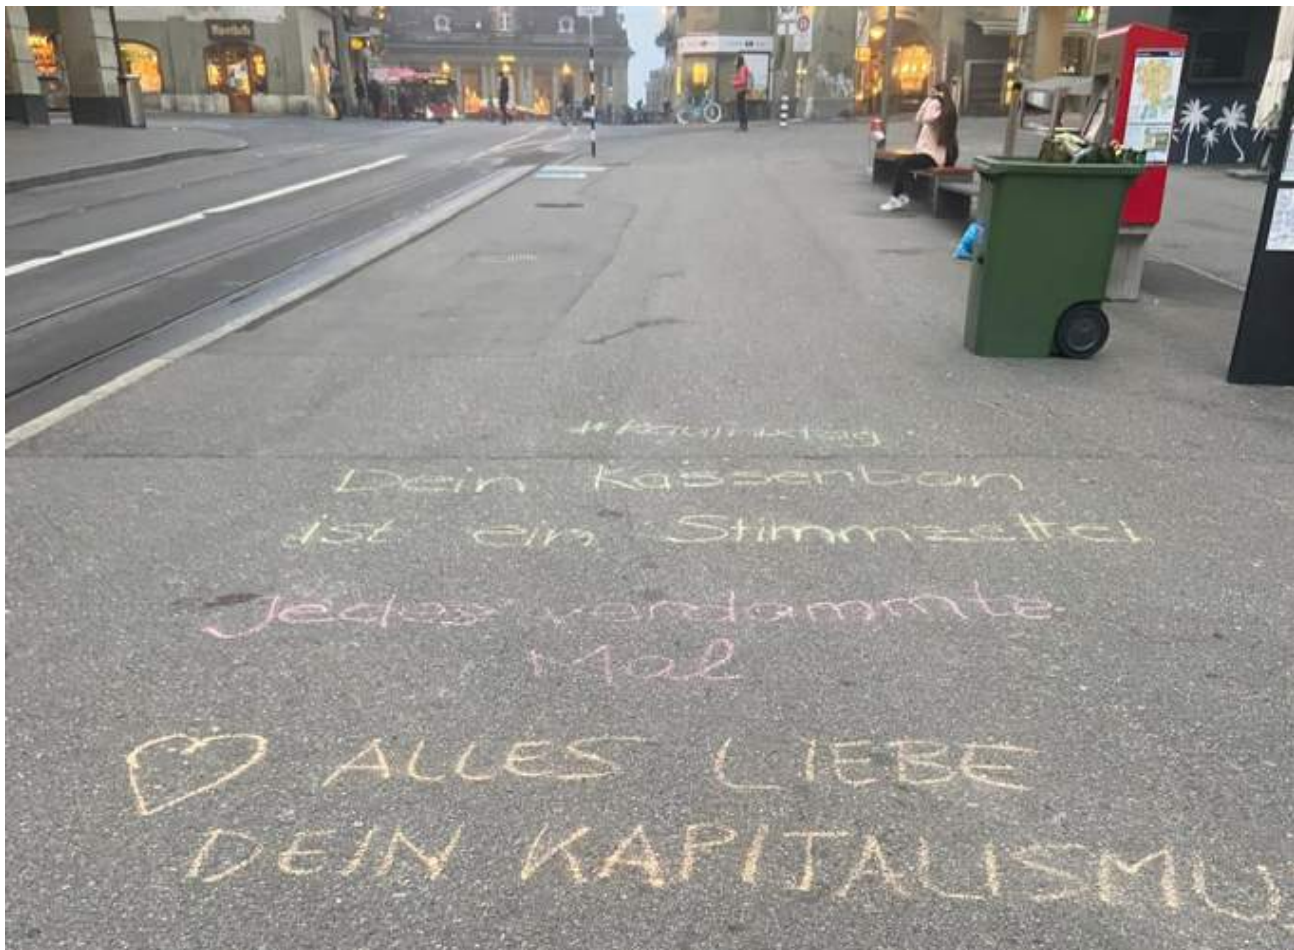 #Kaufnixtag
Dein Kassenbon
ist ein Stimmzettel
Jedes verdammte
Mal
ALLES LIEBE
DEIN KAPITALISMU